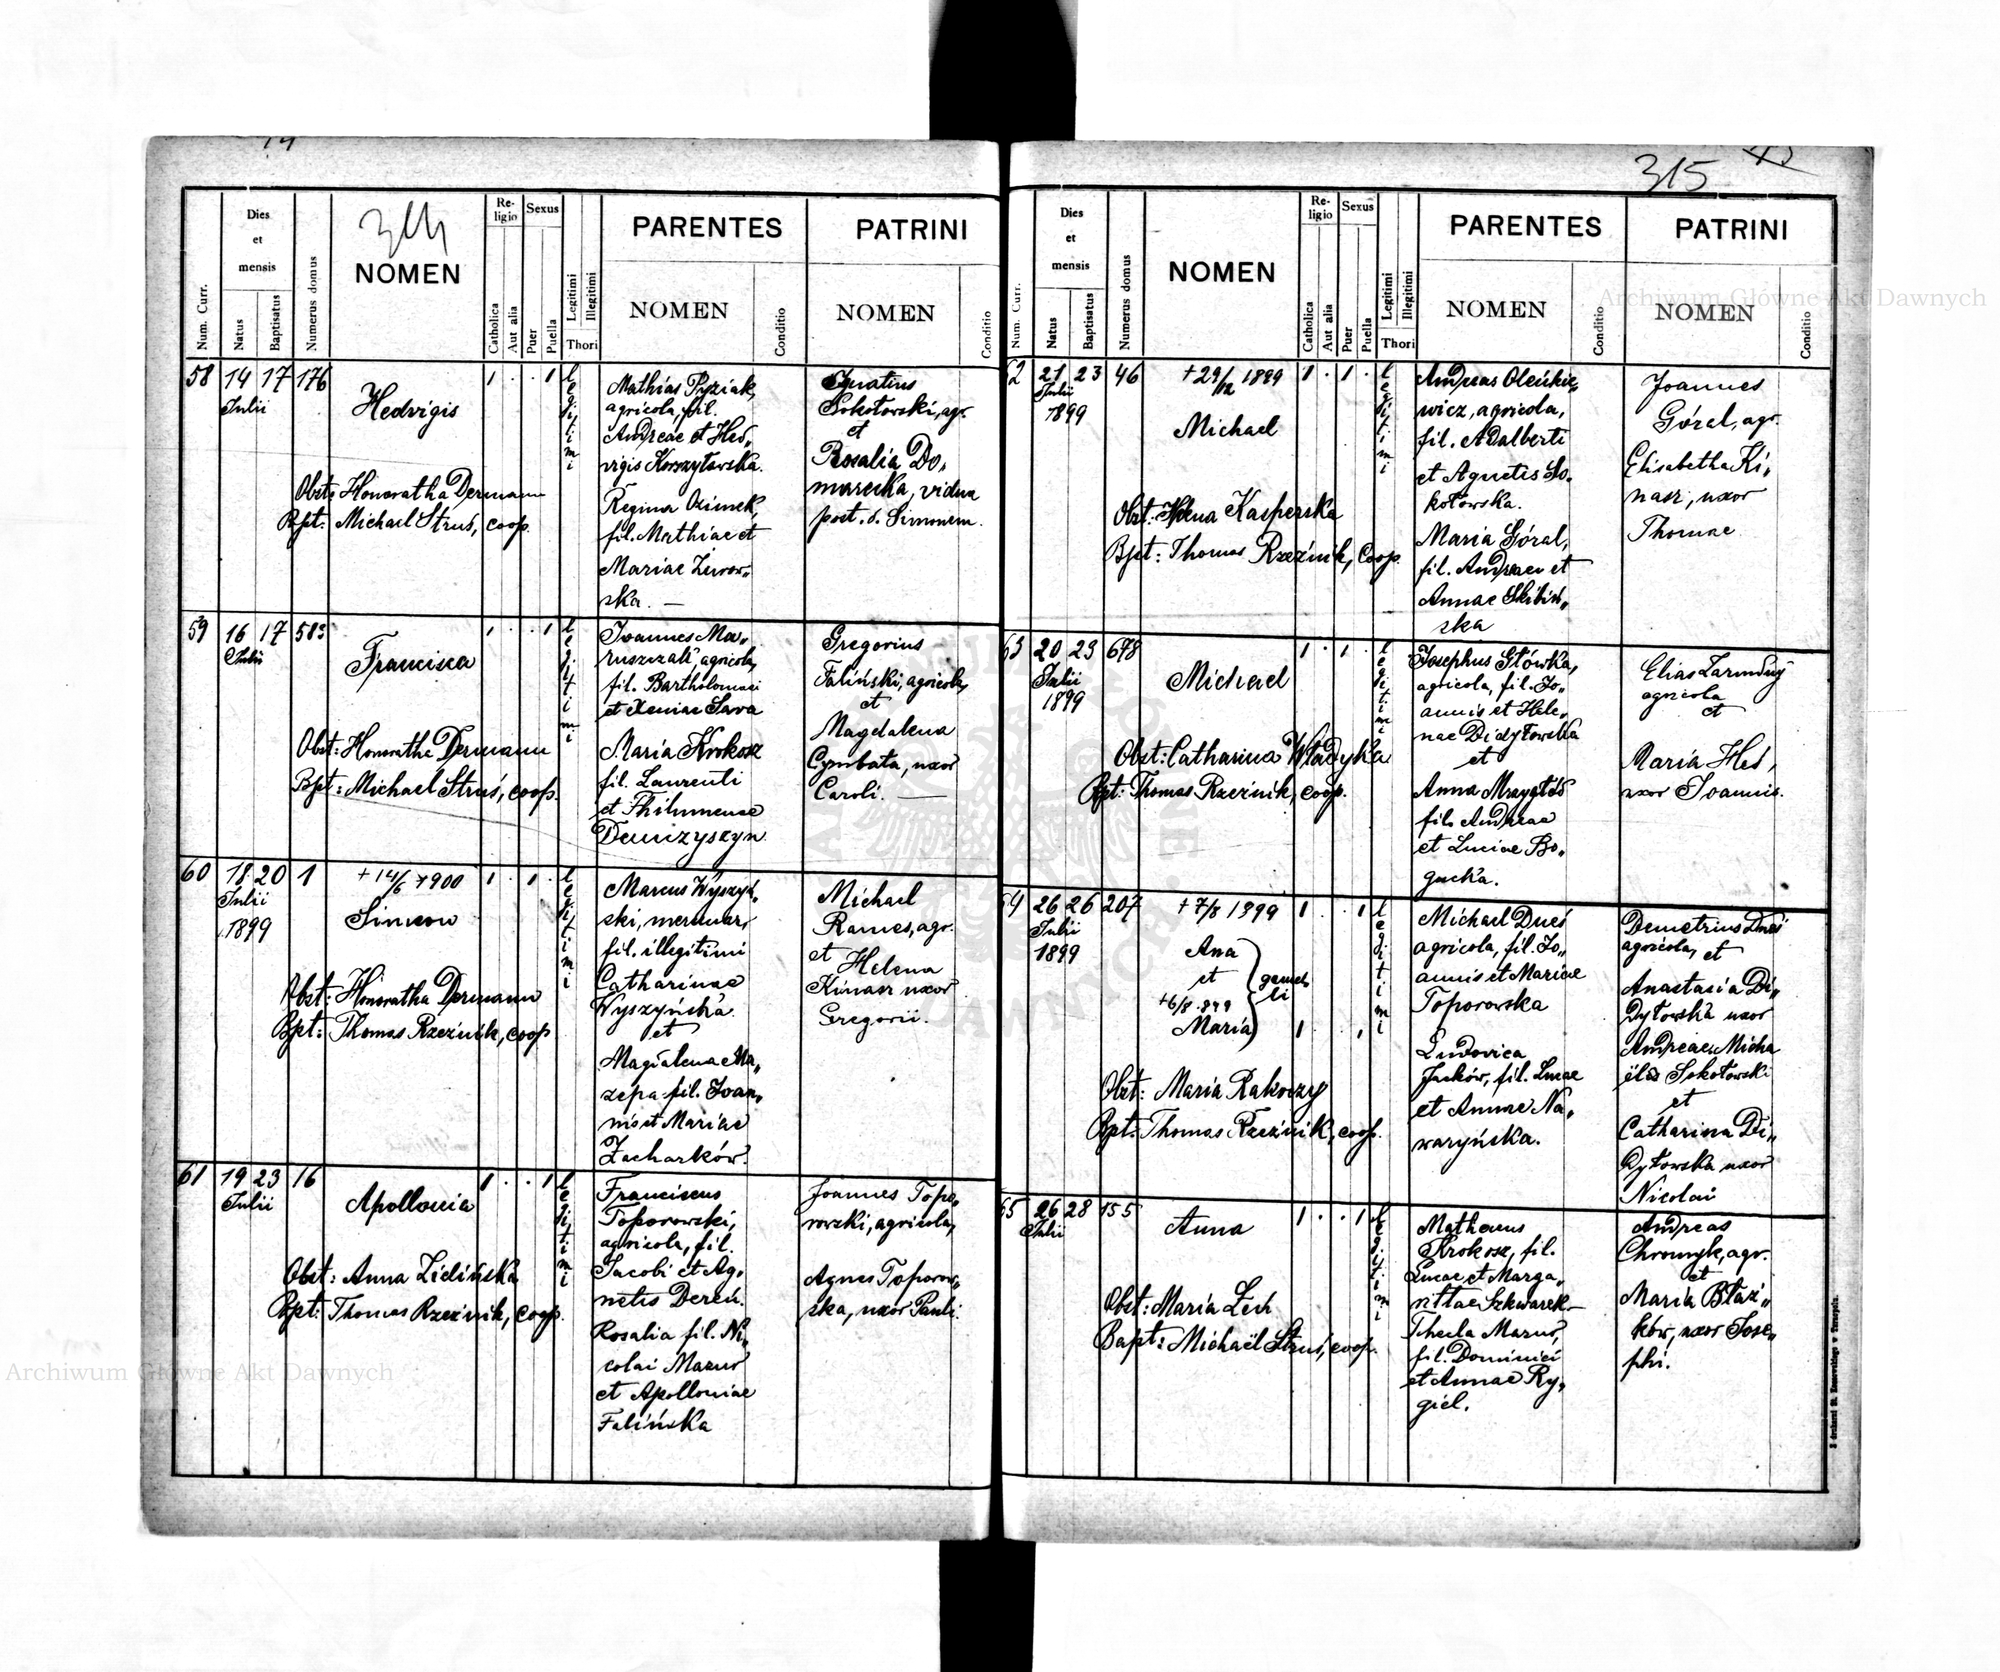 314
Num. Curr.
Dies
et
mensis
Natus
Baptisatus
Numerus domus
NOMEN
Re-
ligio
Catholica
Aut alia
Sexus
Puer
Puella
Legitimi
Illegitimi
Thori
PARENTES
NOMEN
Conditio
PATRINI
NOMEN
Conditio
58 14 17 176
Julii
Hedvigis
1 . . 1
legitimi
Obst: Honoratha Dermann
Bpt: Michael Struś, coop.
Mathias Pyziak,
agricola, fil.
Andreae et Hed„
vigis Korszytowska.
Regina Ozimek,
fil. Mathiae et
Mariae Żurow„
ska. —
Ignatius
Sokołowski, agr.
et
Rosalia Do„
marecka, vidua
post. d. Simonem.
59 16 17 583
Julii
Francisca
1 . . 1
legitimi
Obst: Honoratha Dermann
Bpt: Michael Struś, coop.
Joannes Ma„
ruszczak, agricola,
fil. Bartholomaei
et Xeniae Sava
Maria Krokosz
fil. Laurenti
et Philumenae
Demczyszyn
Gregorius
Faliński, agricola,
et
Magdalena
Cymbata, uxor
Caroli. —
60 18 20 1
Julii
1899
+ 14/6 1900
Simeon
1 . 1 .
legitimi
Obst: Honoratha Dermann
Bpt: Thomas Rzeźnik, coop
Marcus Wyszyń„
ski,
fil. illegitimi
Catharinae
Wyszyńska
et
Magdalena Ma„
zepa fil. Joan„
nis et Mariae
Zacharków.
Michael
Rames, agr.
et Helena
Kinasz uxor
Gregorii.
61 19 23 16
Julii
Apollonia
1 . . 1
legitimi
Obst: Anna Zielińska
Bpt: Thomas Rzeźnik, coop.
Franciscus
Toporowski,
agricola, fil.
Jacobi et Ag„
netis Dereń.
Rosalia fil. Ni„
colai Mazur
et Apolloniae
Falińska
Joannes Topo„
rowski, agricola,
Agnes Toporow„
ska, uxor Pauli.
315
Num. Curr.
Dies
et
mensis
Natus
Baptisatus
Numerus domus
NOMEN
Re-
ligio
Catholica
Aut alia
Sexus
Puer
Puella
Legitimi
Illegitimi
Thori
PARENTES
NOMEN
Conditio
PATRINI
NOMEN
Conditio
62 21 23 46
Julii
1899
+ 29/12 1899
Michael
1 . 1 .
legitimi
Obst: Helena Kasperska
Bpt: Thomas Rzeźnik, coop.
Andreas Oleńkie„
wicz, agricola,
fil. Adalberti
et Agnetis So„
kołowska.
Maria Góral,
fil. Andreae et
Annae Skibiń„
ska
Joannes
Góral, agr.
Elisabetha Ki„
nasz, uxor
Thomae
63 20 23 678
Julii
1899
Michael
1 . 1 .
legitimi
Obst: Catharina Władyka
Bpt: Thomas Rzeźnik, coop.
Josephus Główka,
agricola, fil. Jo„
annis et Hele„
nae Didyłowska
et
Anna
fil. Andreae
et Luciae Bo„
gucka.
Elias
agricola
et
Maria Hed,
uxor Joannis.
64 26 26 207
Julii
1899
+ 7/8 1899
Ana
et
+ 6/8 899
Maria
gemel„
li
1 . . 1
legitimi
Obst: Maria Rakoczy
Bpt: Thomas Rzeźnik, coop.
Michael Dueś
agricola, fil. Jo„
annis et Mariae
Toporowska
Ludovica
Jacków, fil. Lucae
et Annae Na„
waryńska.
Demetrius Dueś
agricola, et
Anastasia Di„
dyłowska uxor
Andreae, Micha
ëlis Sokołowski
et
Catharina Di„
dyłowska uxor
Nicolai
65 26 28 155
Julii
Anna
1 . . 1
legitimi
Obst: Maria Lech
Bapt: Michaël Struś, coop.
Matheus
Krokosz, fil.
Lucae et Marga„
rittae Szkwarek
Thecla Mazur,
fil. Dominici
et Annae Ry„
giel.
Andreas
Chromyk, agr.
et
Maria Błaż„
ków, uxor Jose„
phi.
Archiwum Główne Akt Dawnych
Archiwum Główne Akt Dawnych